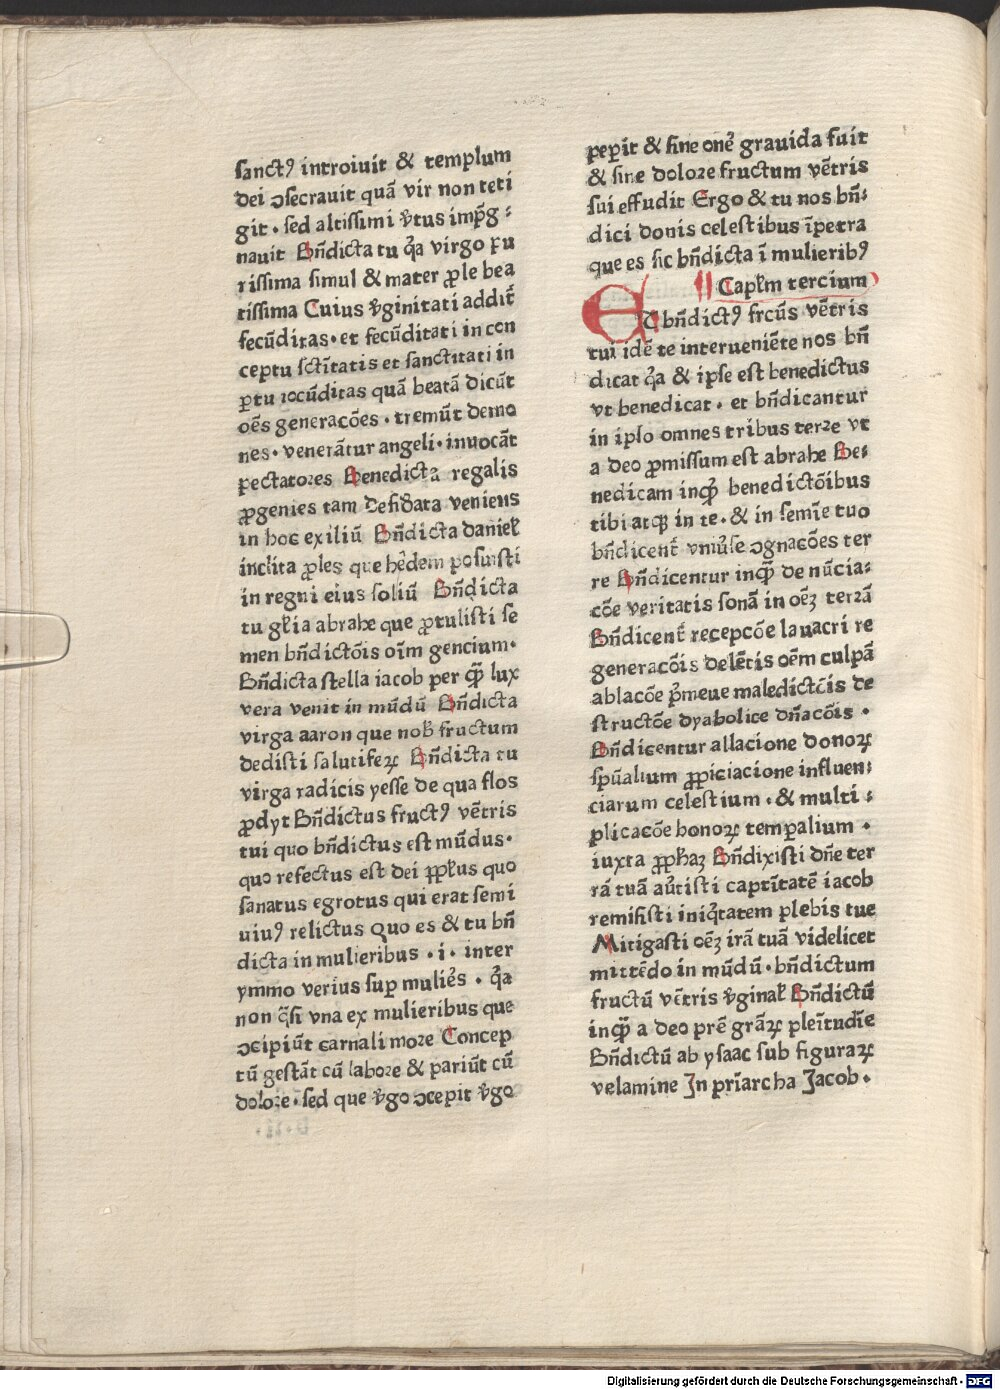 sanctꝰ introiuit & templum
dei ↄsecrauit quā vir non teti
git · sed altissimi v̄tus imp̄g⸗
nauit Bn̄dicta tu q̄a virgo pu
rissima simul & mater ꝓle bea
tissima Cuius v̄ginitati addit᷑
fecūditas · et fecūditati in con
ceptu sctītatis et sanctitati in
ꝑtu iocūditas quā beatā dicūt
oēs generacōes · tremūt demo
nes · venerātur angeli · inuocāt
peccatores Benedicta regalis
ꝓgenies tam desid̾ata veniens
in hoc exiliū Bn̄dicta daniel̕
inclita ꝓles que hēdem posuisti
in regni eius soliū Bn̄dicta
tu gl̕ia abrahe que ꝓtulisti se
men bn̄dictōis oīm gencium ·
Bn̄dicta stella iacob per qꝫ̄ lux
vera venit in mūdū Bn̄dicta
virga aaron que nob̕ fructum
dedisti salutiferꝝ Bn̄dicta tu
virga radicis yesse de qua flos
ꝓdyt Bn̄dictus fructꝰ vētris
tui quo bn̄dictus est mūdus ·
quo refectus est dei ppl̕us quo
sanatus egrotus qui erat semi
uiuꝰ relictus Quo es & tu bn̄
dicta in mulieribus · i · inter
ymmo verius suꝑ mulie᷒s · q̄a
non q̄si vna ex mulieribus que
ↄcipiūt carnali more Concep
tū gestāt cū labore & pariūt cū
dolore · sed que v̄go ↄcepit v̄go
peperit & sine one᷒ grauida fuit
& sine dolore fructum vētris
sui effudit Ergo & tu nos bn̄⸗
dici donis celestibus īpetra
que es sic bn̄dicta ī mulieribꝰ
¶ Capl̕m tercium
ET bn̄dictꝰ frcūs vētris
tui idē te interueniēte nos bn̄
dicat q̄a & ipse est benedictus
vt benedicat · et bn̄dicantur
in ipso omnes tribus terre vt
a deo ꝓmissum est abrahe Be⸗
nedicam inqꝫ̄ benedictōibus
tibi atqꝫ in te · & in semīe tuo
bn̄dicent᷑ vniu̾se ↄgnacōes ter
re Bn̄dicentur inqꝫ̄ de nūcia⸗
cōe veritatis sonā in oēꝫ terrā
Bn̄dicent᷑ recepcōe lauacri re
generacōis delētis oēm culpā
ablacōe p̄meue maledictōis de
structōe dyabolice dn̄acōis ·
Bn̄dicentur allacione donoꝝ
spūalium ꝓpiciacione influen⸗
ciarum celestium · & multi⸗
plicacōe honoꝝ tempalium ·
iuxta ꝓph̕aꝫ Bn̄dixisti dn̄e ter
rā tuā au̾tisti captītatē iacob
remisisti iniq̄tatem plebis tue
Mitigasti oēꝫ irā tuā videlicet
mittēdo in mūdū · bn̄dictum
fructū vētris v̄ginal̕ Bn̄dictū
inqꝫ̄ a deo prē grāꝝ pleītudīe
Bn̄dictū ab ysaac sub figuraꝝ
velamine In prīarcha Jacob ·
Digitalisierung gefördert durch die Deutsche Forschungsgemeinschaft - DFG